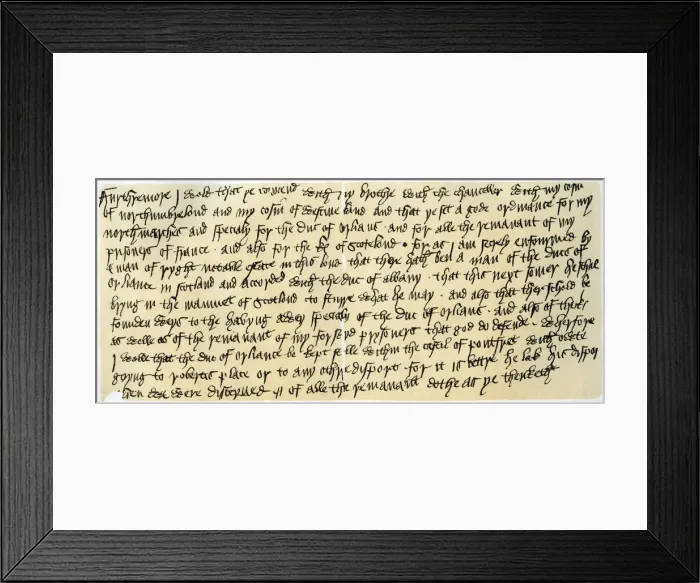 Furthremore I wold that ye comend with my brothe with the chanceller with my cosin
of northumbrelond and my cosin of westmerland and that ye set a gode ordinance for my
north marches and specialy for the duc of orlians and for alle the remanant of my
prisoners of france and also for the k of scotelond for as I am secrely enfourmed by
a man of ryght notable estate in this lond that there hath ben a man of the ducs of
orliance in scotland and accorded with the duc of albany that this next somer he schal
bryng in the mamuet of scotlond to sturre what he may and also that ther schold be
founden weys to the havyng awey specialy of the duc of orlians and also of the k
as welle as of the remanant of my forseyd prisoners that god do defende wherfore
I wolle that the duc of orliance be kept stille withyn the castil of pontfret with owte
goyng to robertis place or to any othre disport for it is bettre he lak his disport
then we were disceyved of alle the remanant dothe as ye thenketh